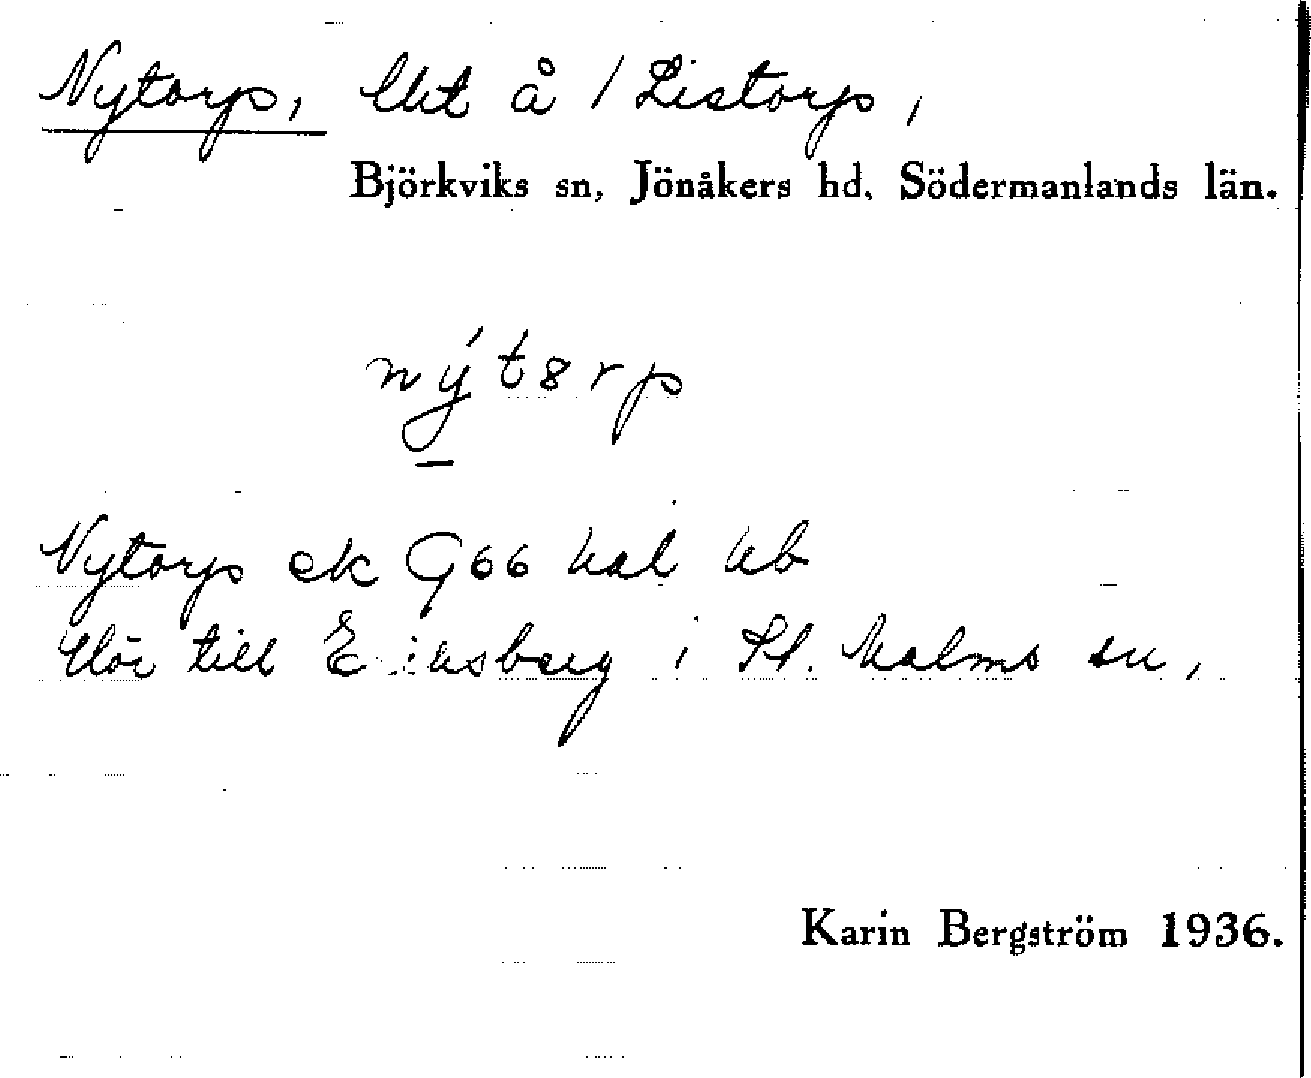 Nytorp, lht å 1 Listorp,
Björkviks sn, Jönåkers hd, Södermanlands län.
nýtsrp
Nytorp ek G66 hal kb
Hör till Eriksberg i St. Malms sn,
Karin Bergström 1936.